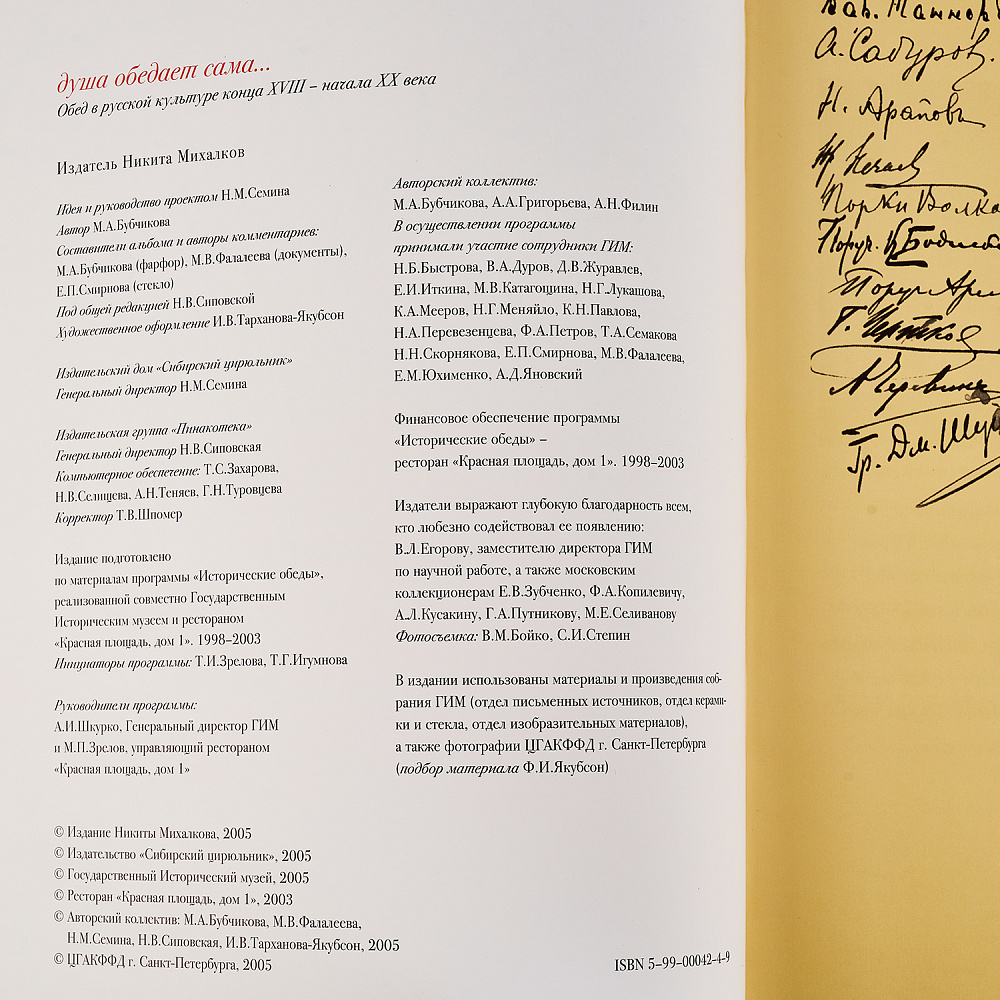 душа обедает сама...
Обед в русской культуре конца XVIII – начала XX века
Издатель Никита Михалков
Идея и руководство проектом Н.М.Семина
Автор М.А.Бубчикова
Составители альбома и авторы комментариев:
М.А.Бубчикова (фарфор), М.В.Фалалеева (документы),
Е.П.Смирнова (стекло)
Под общей редакцией Н.В.Сиповской
Художественное оформление И.В.Тарханова-Якубсон
Издательский дом «Сибирский цирюльник»
Генеральный директор Н.М.Семина
Издательская группа «Пинакотека»
Генеральный директор Н.В.Сиповская
Компьютерное обеспечение: Т.С.Захарова,
Н.В.Селищева, А.Н.Теняев, Г.Н.Туровцева
Корректор Т.В.Шпомер
Издание подготовлено
по материалам программы «Исторические обеды»,
реализованной совместно Государственным
Историческим музеем и рестораном
«Красная площадь, дом 1». 1998–2003
Инициаторы программы: Т.И.Зрелова, Т.Г.Игумнова
Руководители программы:
А.И.Шкурко, Генеральный директор ГИМ
и М.П.Зрелов, управляющий рестораном
«Красная площадь, дом 1»
© Издание Никиты Михалкова, 2005
© Издательство «Сибирский цирюльник», 2005
© Государственный Исторический музей, 2005
© Ресторан «Красная площадь, дом 1», 2003
© Авторский коллектив: М.А.Бубчикова, М.В.Фалалеева,
Н.М.Семина, Н.В.Сиповская, И.В.Тарханова-Якубсон, 2005
© ЦГАКФФД г. Санкт-Петербурга, 2005
Авторский коллектив:
М.А.Бубчикова, А.А.Григорьева, А.Н.Филин
В осуществлении программы
принимали участие сотрудники ГИМ:
Н.Б.Быстрова, В.А.Дуров, Д.В.Журавлев,
Е.И.Иткина, М.В.Катагощина, Н.Г.Лукашова,
К.А.Мееров, Н.Г.Меняйло, К.Н.Павлова,
Н.А.Перевезенцева, Ф.А.Петров, Т.А.Семакова
Н.Н.Скорнякова, Е.П.Смирнова, М.В.Фалалеева,
Е.М.Юхименко, А.Д.Яновский
Финансовое обеспечение программы
«Исторические обеды» –
ресторан «Красная площадь, дом 1». 1998–2003
Издатели выражают глубокую благодарность всем,
кто любезно содействовал ее появлению:
В.Л.Егорову, заместителю директора ГИМ
по научной работе, а также московским
коллекционерам Е.В.Зубченко, Ф.А.Копилевичу,
А.Л.Кусакину, Г.А.Путникову, М.Е.Селиванову
Фотосъемка: В.М.Бойко, С.И.Степин
В издании использованы материалы и произведения соб-
рания ГИМ (отдел письменных источников, отдел керами-
ки и стекла, отдел изобразительных материалов),
а также фотографии ЦГАКФФД г. Санкт-Петербурга
(подбор материала Ф.И.Якубсон)
ISBN 5-99-00042-4-9
А. Сабуров.
Н. Араповъ
Гр. Дм.